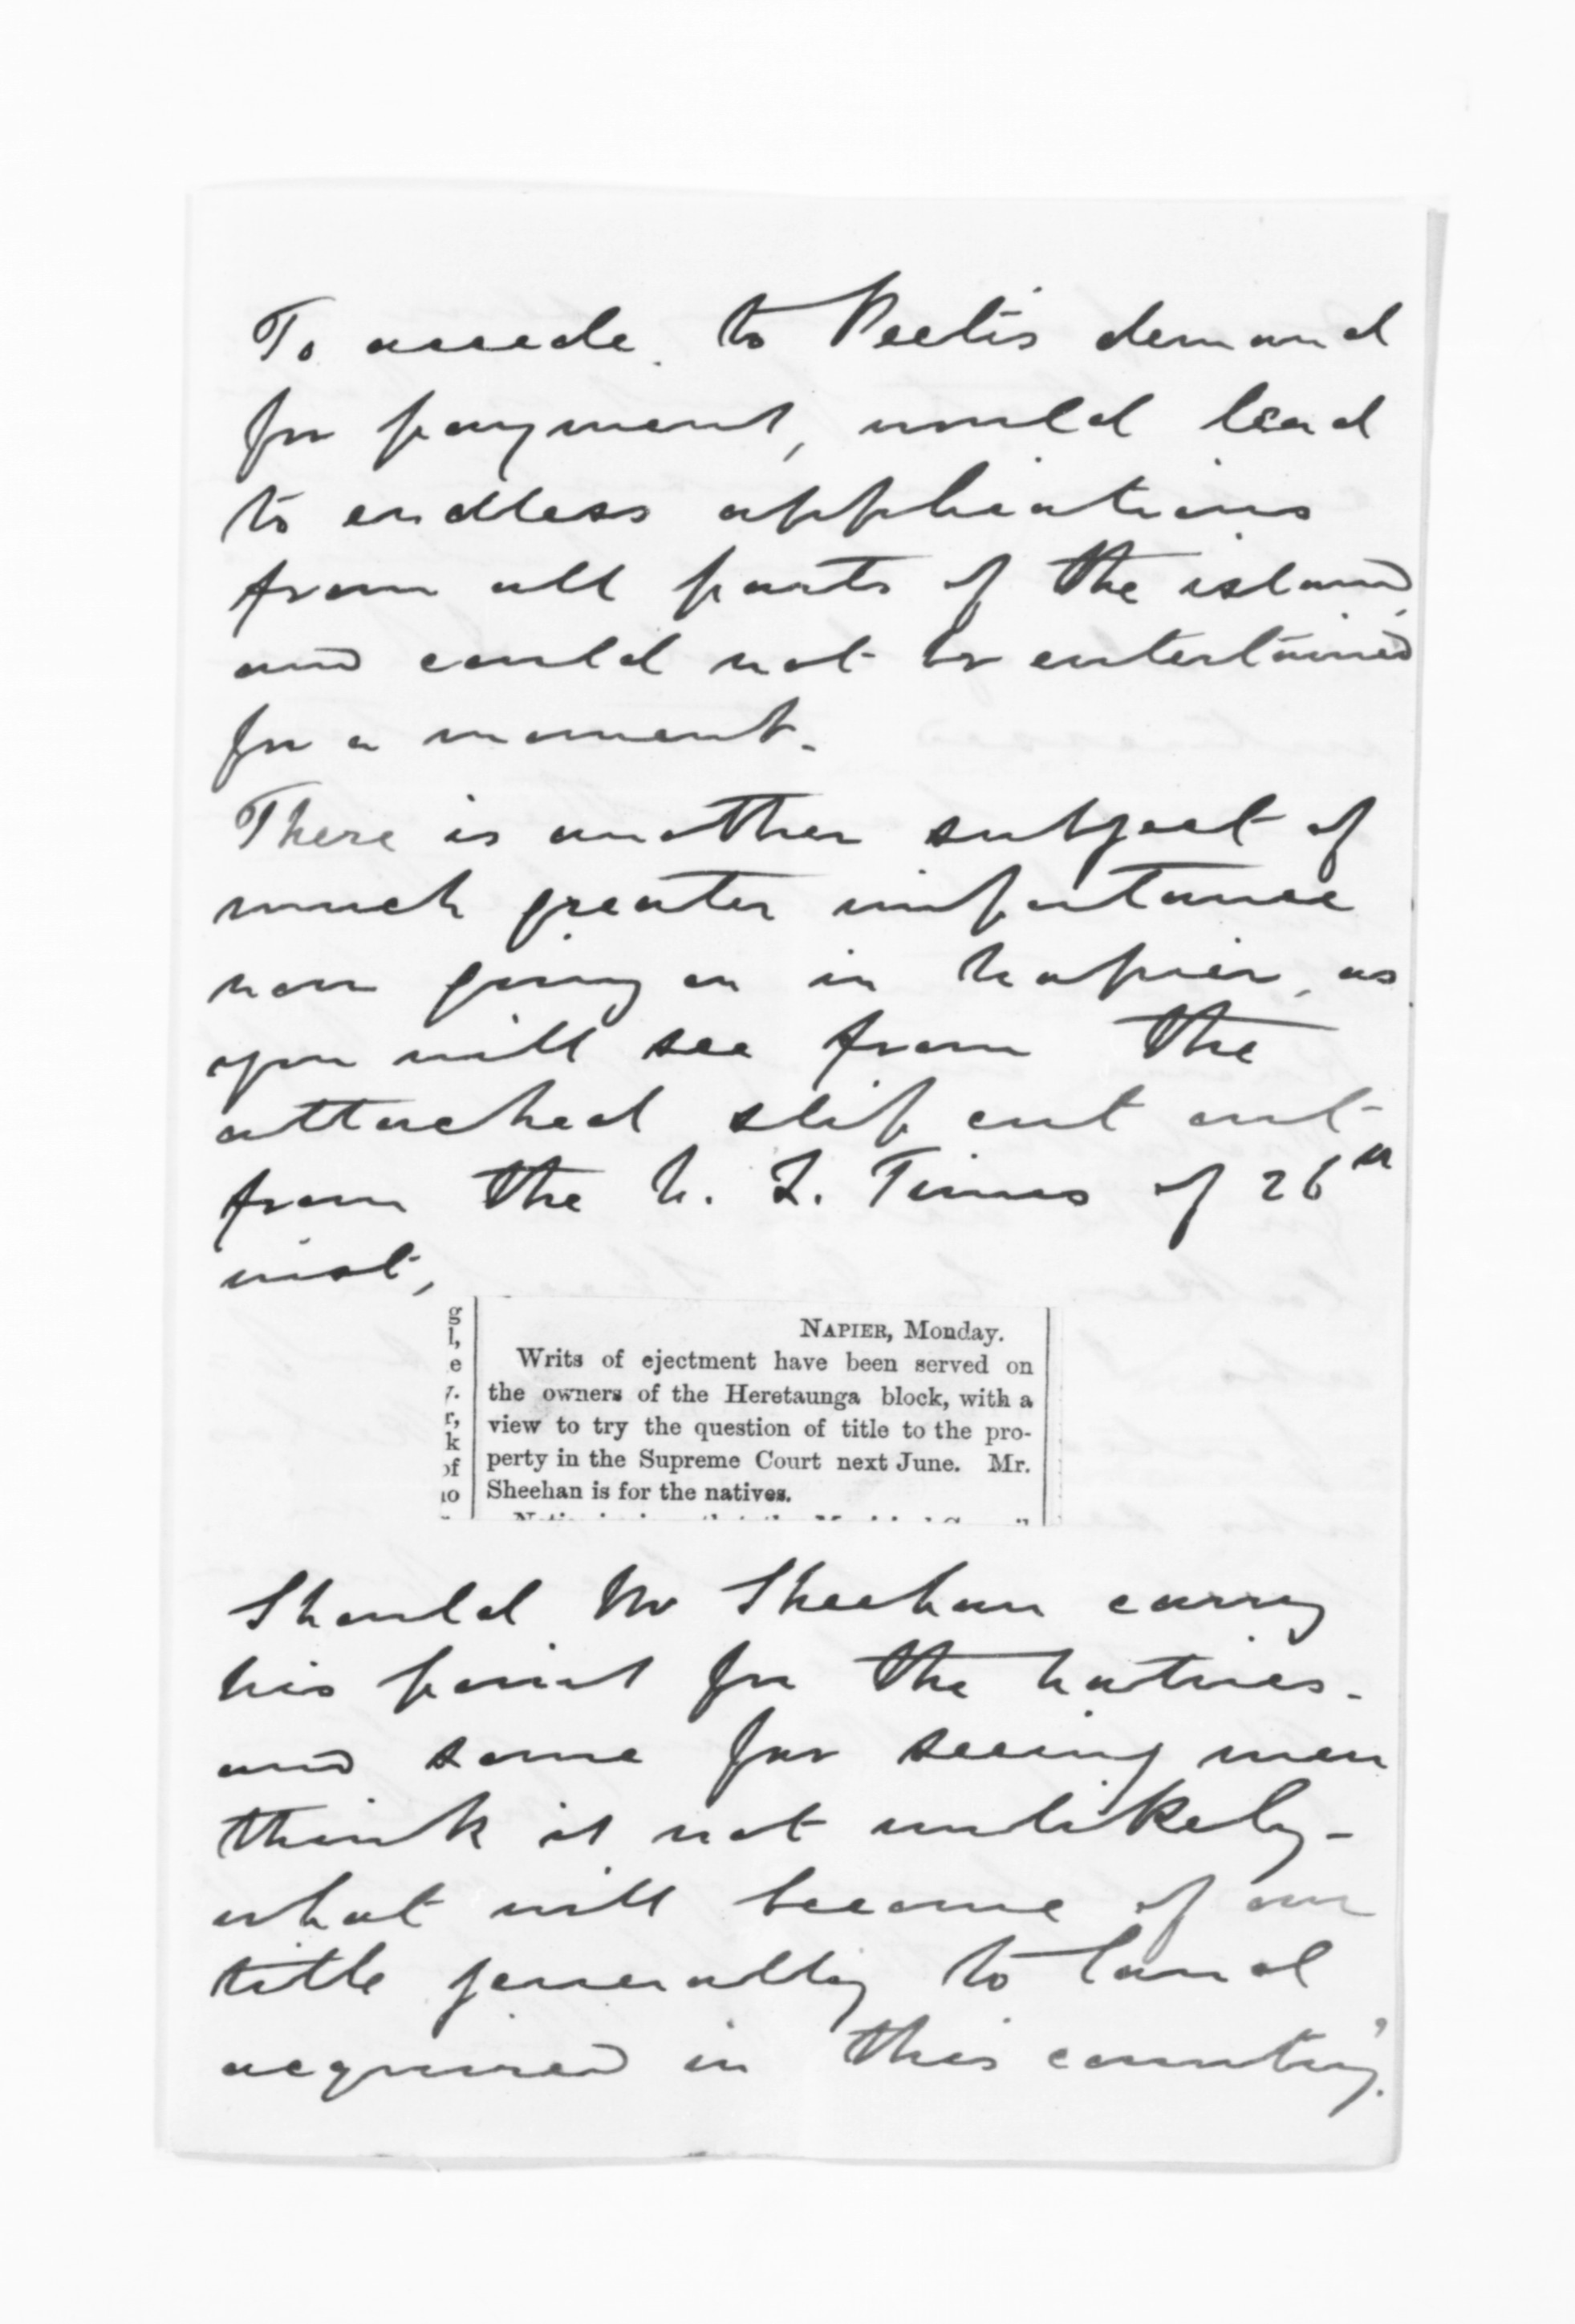 To accede to Peeti's demand
for payment, would lead
to endless applications
from all parts of the island,
and could not be entertained
for a moment.
There is another subject of
much greater importance
now going on in Napier, as
you will see from the
attached slip cut out
from the N. Z. Times of 26th
inst,
g
l,
e
y.
r,
k
of
io
NAPIER, Monday.
Writs of ejectment have been served on
the owners of the Heretaunga block, with a
view to try the question of title to the pro-
perty in the Supreme Court next June. Mr.
Sheehan is for the natives.
Should Mr Sheehan carry
his point for the natives -
and some far seeing men
think it not unlikely -
what will become of our
title generally to land
acquired in this country?